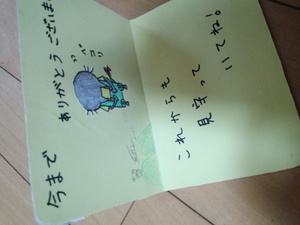 今まで
ありがとうございま
ペコリ
これからも
見守って
いてね！